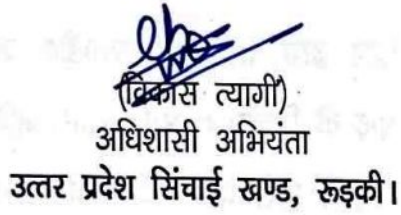 (विकास त्यागी)
अधिशासी अभियंता
उत्तर प्रदेश सिंचाई खण्ड, रूड़की।